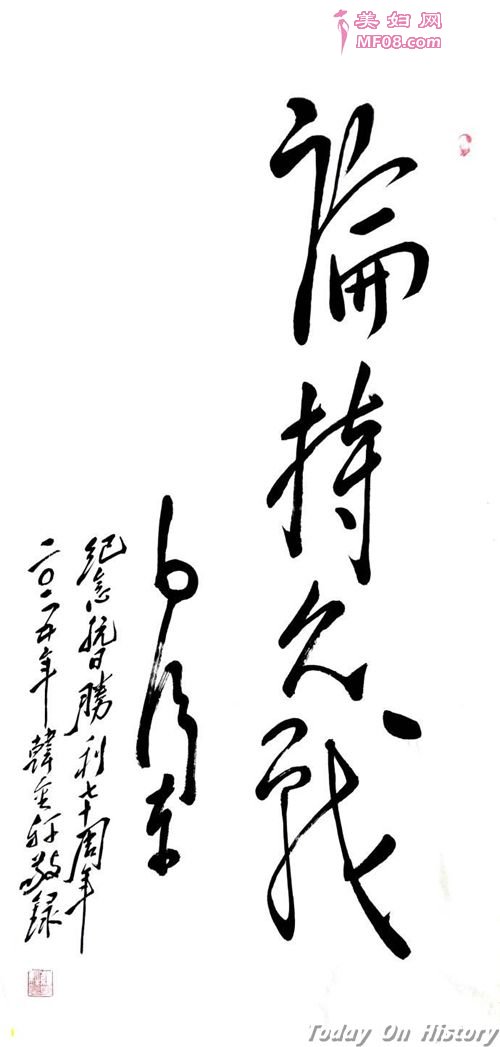 美妇网
MF08.com
論持久戰
毛泽东
纪念抗日勝利七十周年
二〇一五年 韓 敬録
Today On History